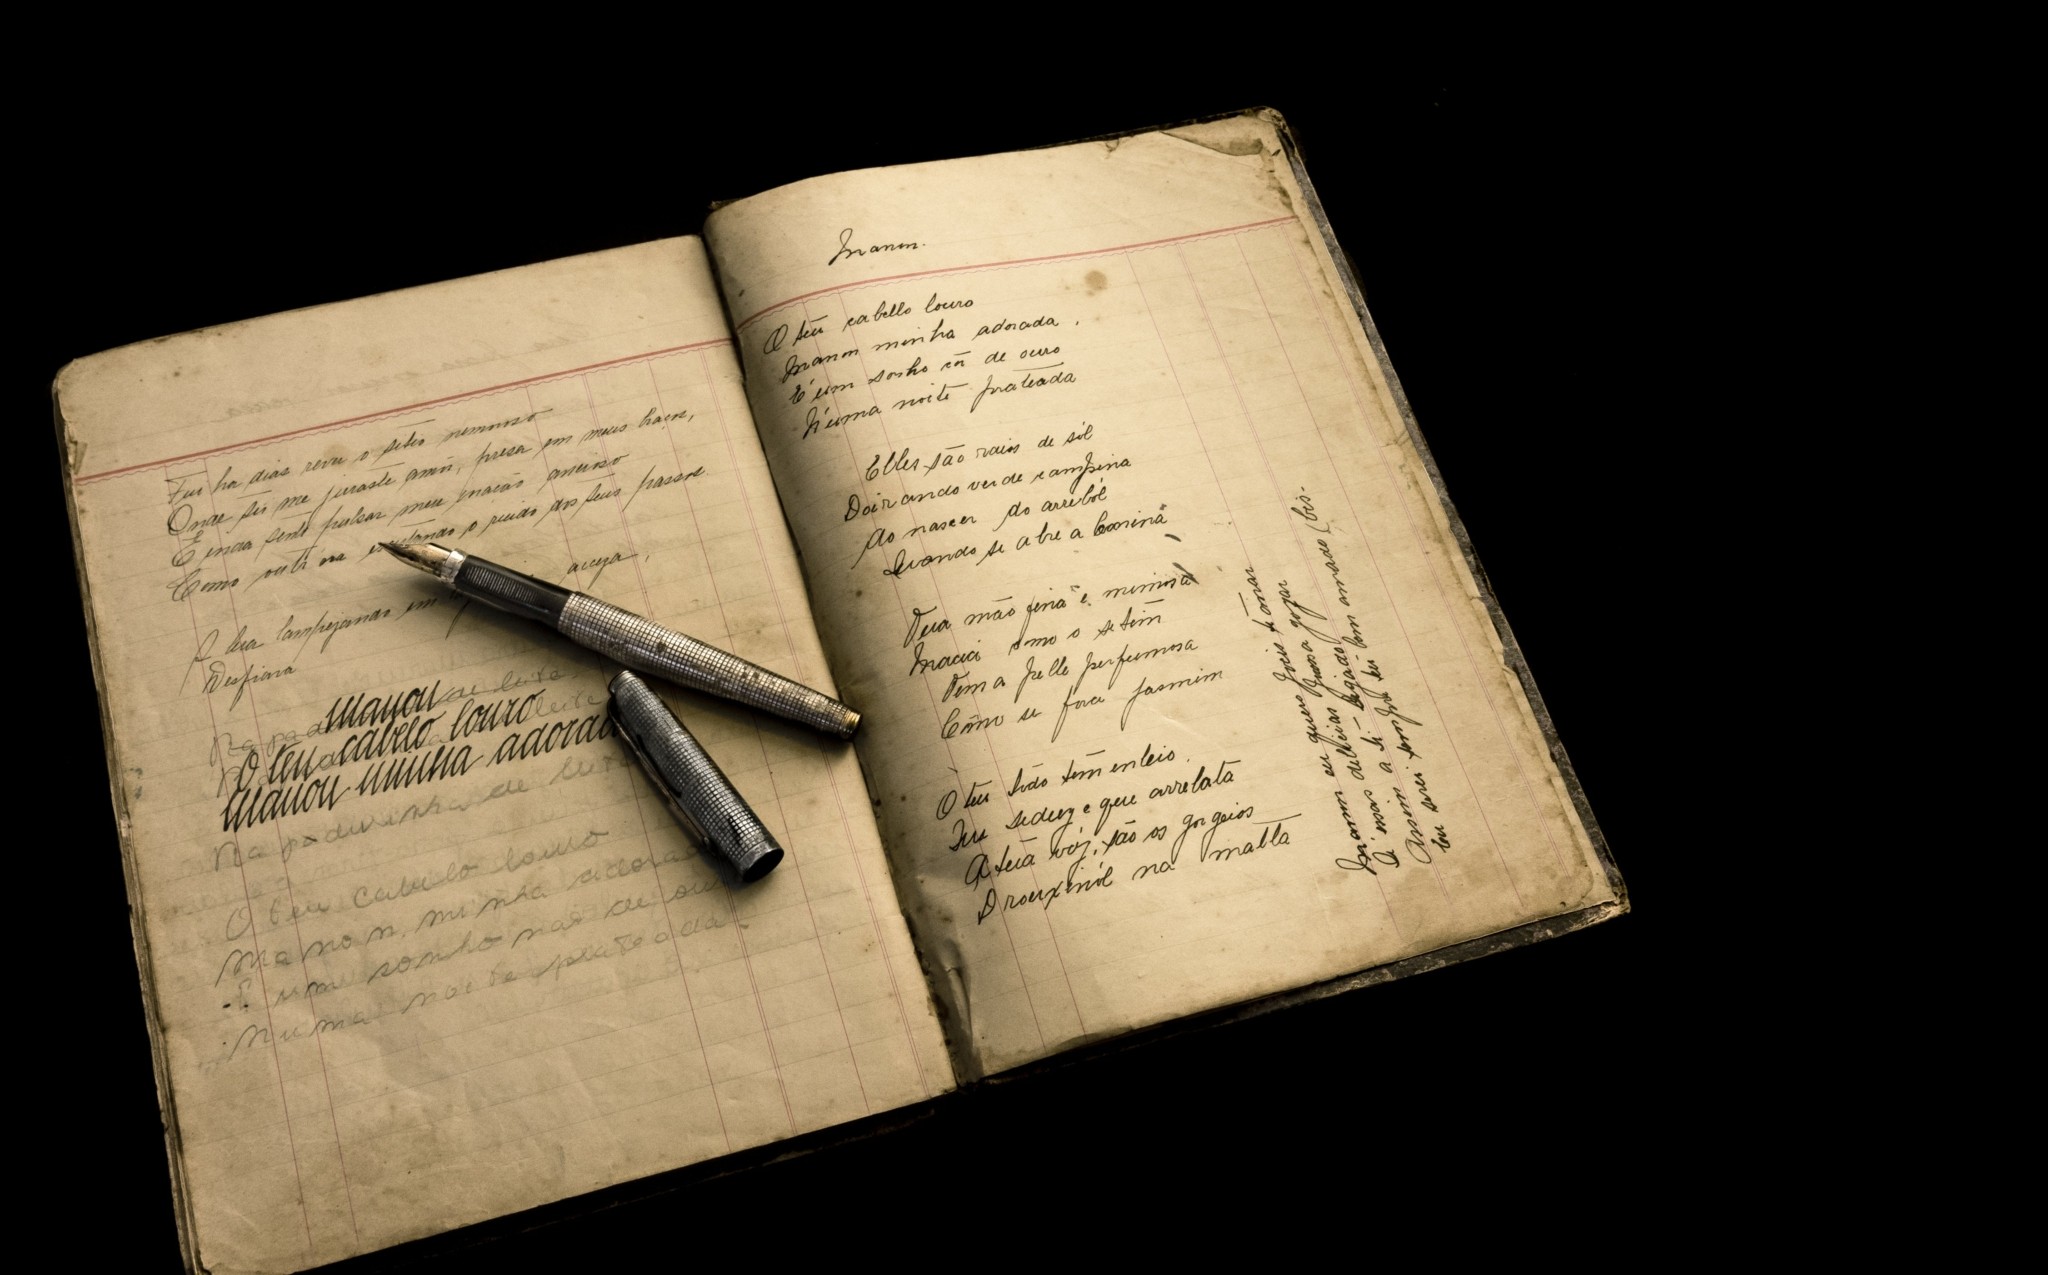 Fui ha dias rever o sitio
Onde tu me juraste amor, presa em meus braços,
E inda sente pulsar meu coração ancioso
Como outr'ora escutando o ruido dos teus passos
A lua lampejando em
Desfiava
Manon
O teu cabelo louro
Manon minha adorada
Na padi nha de
O teu cabelo louro
Manon, minha adorada
É um sonho de ouro
Numa noite prateada
Manon.
O teu cabello louro
Manon minha adorada,
É um sonho côr de ouro
N'uma noite prateada
Elles são raios de sól
Doirando verde campina
Ao nascer do arreból
Quando se abre a bonina
Tua mão fina é mimosa
Macia como o setim
Tem a pelle perfumosa
Como se fora jasmim
O teu todo tem enleio
Que seduz e que arrebata
A tua vóz, são os gorgeios
D'rouxinól na matta
Manon eu quero pois te amar
E mas delicias gozar
Assim a ti ligado bem amado (bis.
Eu serei